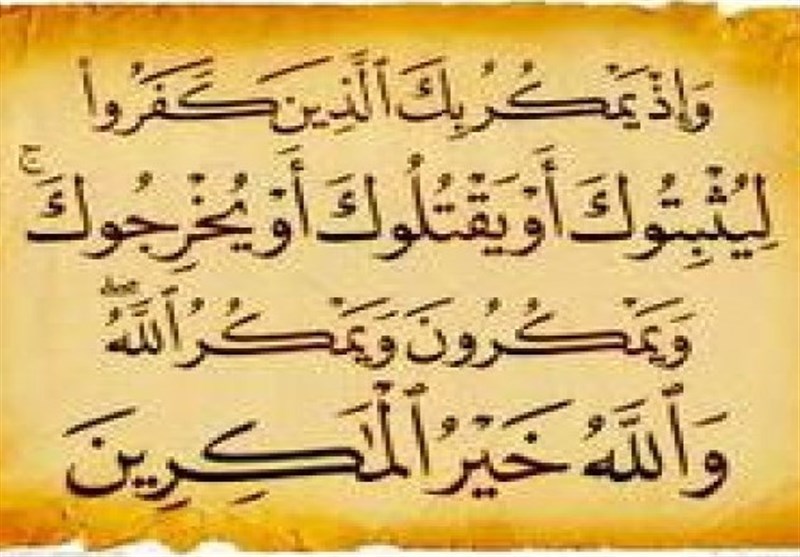 وَإِذْ يَمْكُرُ بِكَ ٱلَّذِينَ كَفَرُوا۟
لِيُثْبِتُوكَ أَوْ يَقْتُلُوكَ أَوْ يُخْرِجُوكَ ۚ
وَيَمْكُرُونَ وَيَمْكُرُ ٱللَّهُ ۖ
وَٱللَّهُ خَيْرُ ٱلْمَٰكِرِينَ